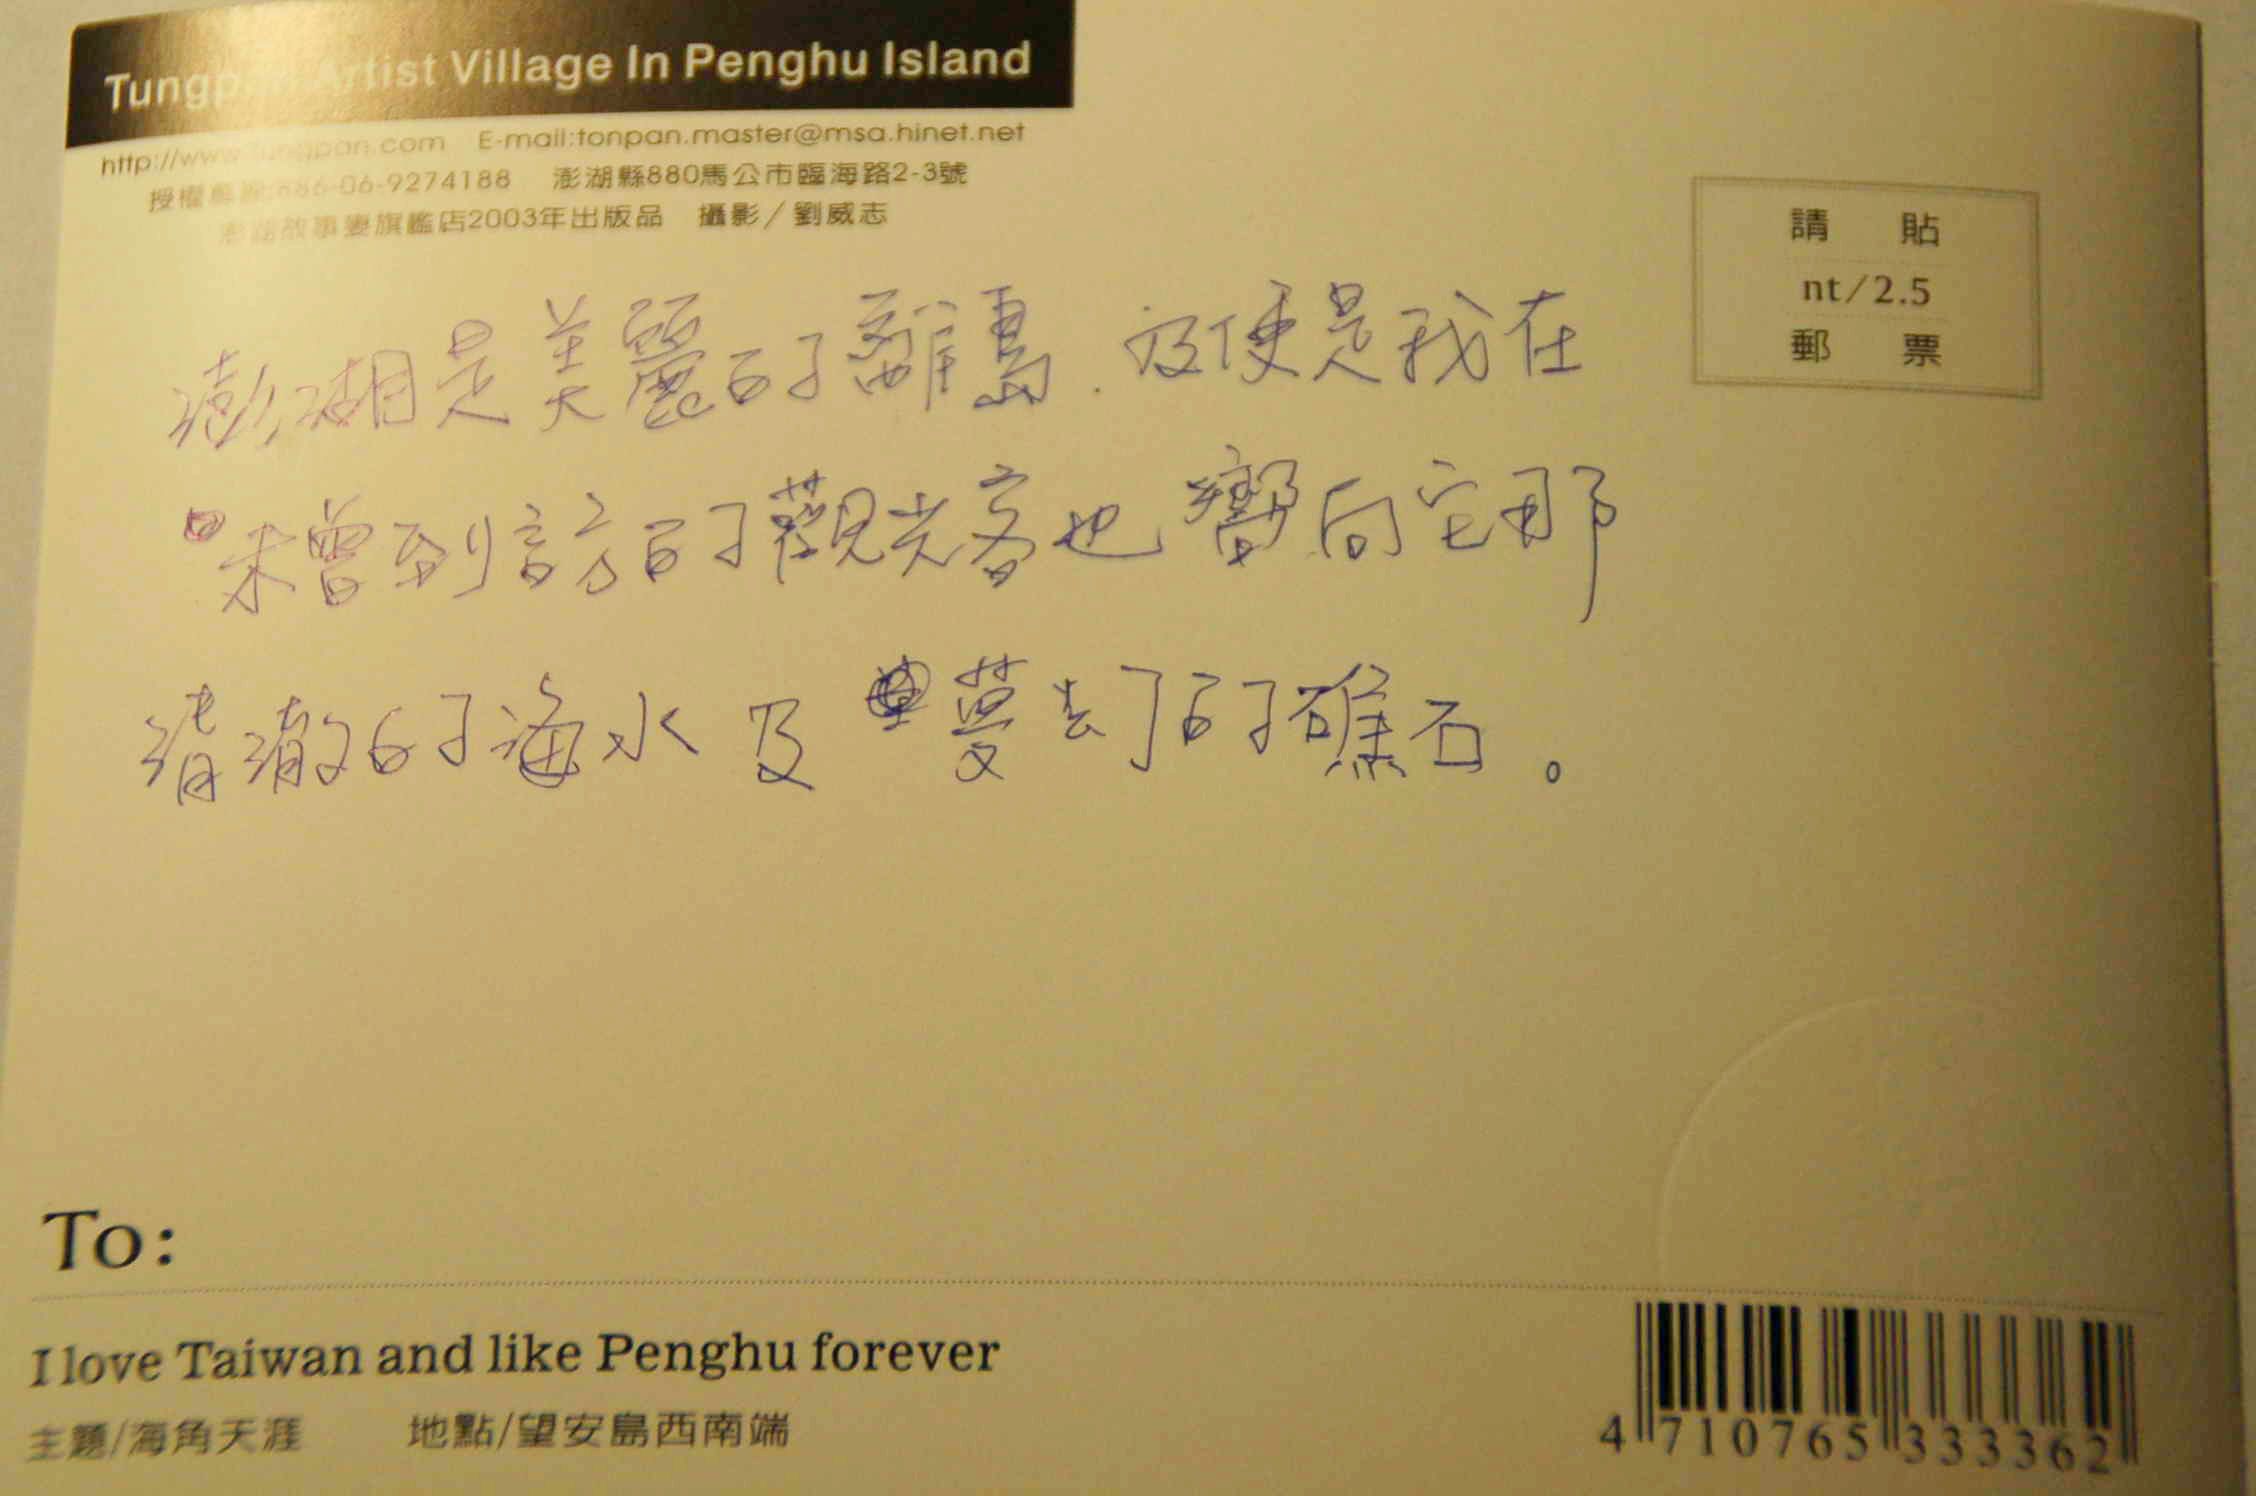 Tungpan Artist Village In Penghu Island
http://www.tungpan.com E-mail:tonpan.master@msa.hinet.net
授權專線:886-06-9274188 澎湖縣880馬公市臨海路2-3號
澎湖故事妻旗艦店2003年出版品 攝影/劉威志
請 貼
nt/2.5
郵 票
澎湖是美麗的離島.及便是我在
未曾到訪的觀光客也嚮向它那
清澈的海水及夢幻的礁石。
To:
I love Taiwan and like Penghu forever
主題/海角天涯 地點/望安島西南端
4 710765 333362